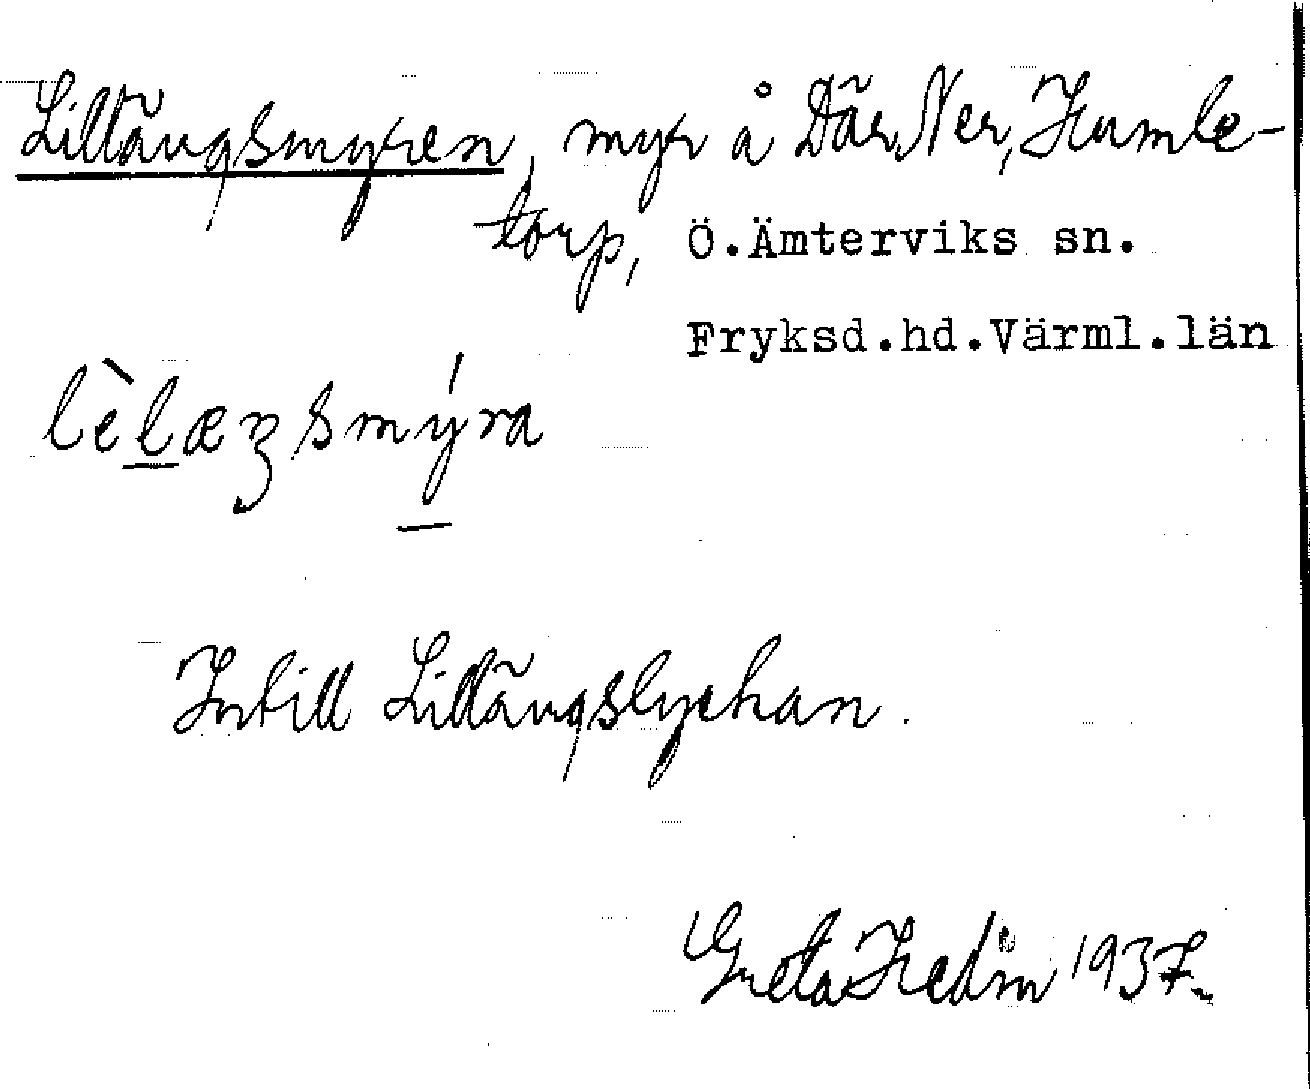 Lillängsmyren, myr å Där Ner, Humle-
torp, Ö.Ämterviks sn.
Fryksd.hd.Värml.län
lèlæŋsmýra
Intill Lillängslyckan.
Greta Hedin 1937.